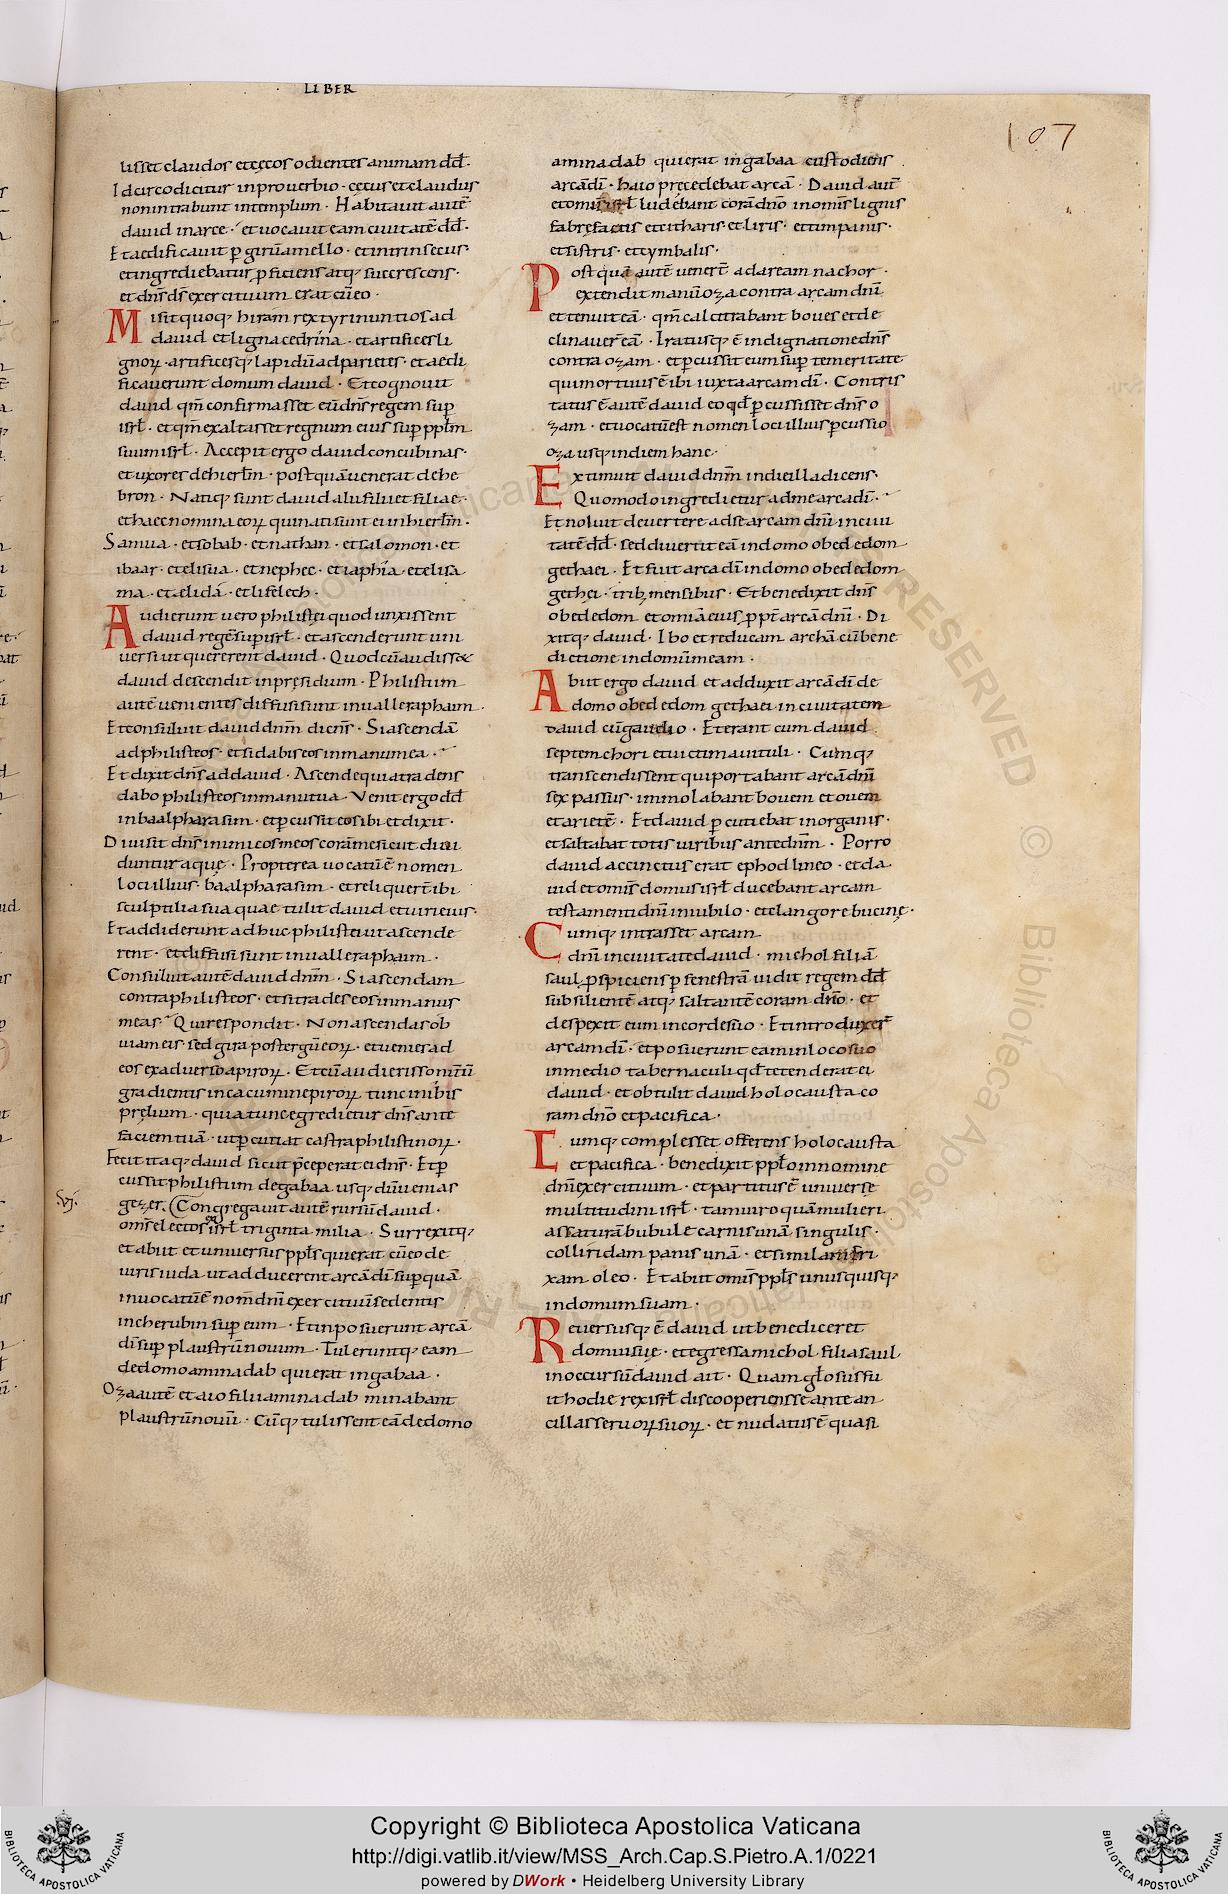 LIBER
107
lisset claudos et cęcos odientes animam dd̄.
Idcirco dicitur in proverbio · cęcus et claudus
non intrabunt in templum · Habitavit autē
david in arce · et vocavit eam civitatē dd̄.
Et aedificavit p̱ girū a mello · et intrinsecus ·
et ingrediebatur p̱ficiens atq; succrescens ·
et dn̄s ds̄ exercituum erat cū eo ·
Misit quoq; hiram rex tyri nuntios ad
david et ligna cedrina · et artifices li
gnoꝝ · artificesq; lapidū ad parietes · et aedi
ficaverunt domum david · Et cognovit
david qm̄ confirmasset eū dn̄s regem sup̱
isrł · et qm̄ exaltasset regnum eius sup̱ ppłm
suum isrł · Accepit ergo david concubinas ·
et uxores de hierłm · postquā venerat de he
bron · Natiq; sunt david alii filii et filiae ·
et haec nomina eoꝝ qui nati sunt ei in hierłm ·
Samua · et sobab · et nathan · et salomon · et
ibaar · et elisua · et nephec · et iaphia · et elisa
ma · et elida · et lifelech ·
Audierunt vero philistei quod unxissent
david regē sup̱ isrł · et ascenderunt uni
versi ut quererent david · Quod cū audisset
david descendit in pręsidium · Philistiim
autē venientes diffusi sunt in valle raphaim ·
Et consuluit david dnm̄ dicens · Si ascendā
ad philisteos · et si dabis eos in manu mea ·
Et dixit dn̄s ad david · Ascende quia tradens
dabo philisteos in manu tua · Venit ergo dd̄
in baalpharasim · et p̱cussit eos ibi et dixit ·
Divisit dn̄s inimicos meos corā me sicut divi
duntur aquę · Propterea vocatū ē nomen
loci illius · baalpharasim · et reliquert̄ ibi
sculptilia sua quae tulit david et viri eius ·
Et addiderunt adhuc philistei ut ascende
rent · et diffusi sunt in valle raphaim ·
Consuluit autē david dnm̄ · Si ascendam
contra philisteos · et si trades eos in manus
meas · Qui respondit · Non ascendas ob
viam eis · sed gira post tergū eoꝝ · et venies ad
eos ex adverso apiroꝝ · Et cū audieris sonitū
gradientis in cacumine piroꝝ tunc inibis
pręlium · quia tunc egredietur dn̄s ante
faciem tuā · ut p̱cutiat castra philistinoꝝ ·
Fecit itaq; david sicut p̄ceperat ei dn̄s · Et p̱
cussit philistiim de gabaa usq; dū venias
VI.
gezer. Congregavit autē rursū david ·
om̄s electos ex isrł triginta milia · Surrexitq;
et abiit et universus ppłs qui erat cū eo de
viris iuda ut adducerent arcā dī sup̱ quā
invocatū ē nom̄ dn̄i exercituū sedentis
in cherubin sup̱ eum · Et inposuerunt arcā
dī sup̱ plaustrū novum · Tuleruntq; eam
de domo aminadab qui erat in gabaa ·
Oza autē et aio filii aminadab minabant
plaustrū novū · Cūq; tulissent eā de domo
aminadab qui erat in gabaa custodiens
arcā dī · haio pręcedebat arcā · David aut̄
et omis isrł ludebant corā dn̄o in omīs lignis
fabręfactis et citharis et liris · et timpanis ·
et sistris · et cymbalis ·
Postquā autē venert̄ ad aream nachor ·
extendit manū oza contra arcam dn̄i
et tenuit eā · qm̄ calcitrabant boves et de
clinaver̄ eā · Iratusq; ē indignatione dn̄s
contra ozam · et p̱cussit eum sup̱ temeritate
qui mortuus ē ibi iuxta arcam dī · Contris
tatus ē autē david eo qd̄ p̱cussisset dn̄s o
zam · et vocatū est nomen loci illius p̱cussio
oza usq; in diem hanc ·
Extimuit david dnm̄ in die illa dicens ·
Quomodo ingredietur ad me arca dī ·
Et noluit devertere ad se arcam dn̄i in civi
tatē dd̄ · sed divertit eā in domo obededom
gethaei · Et fuit arca dī in domo obededom
gethei · trib; mensibus · Et benedixit dn̄s
obededom et omīa eius p̱pt̄ arcā dn̄i · Di
xitq; david · Ibo et reducam archā cū bene
dictione in domū meam ·
Abiit ergo david et adduxit arcā dī de
domo obededom gethaei in civitatem
david cū gaudio · Et erant cum david
septem chori et victima vituli · Cumq;
transcendissent qui portabant arcā dn̄i
sex passus · immolabant bovem et ovem
et arietē · Et david p̱cutiebat in organis ·
et saltabat totis viribus ante dnm̄ · Porro
david accinctus erat ephod lineo · et da
vid et omīs domus isrł ducebant arcam
testamenti dn̄i in iubilo · et clangore bucinę ·
Cumq; intrasset arcam
dn̄i in civitate david · michol filiā
saul p̱spiciens p̱ fenestrā vidit regem dd̄
subsilientē atq; saltantē coram dn̄o · et
despexit eum in corde suo · Et introduxer̄
arcam dī · et posuerunt eam in loco suo
in medio tabernaculi qd̄ tetenderat ei
david · et obtulit david holocausta co
ram dn̄o et pacifica ·
Cumq; complesset offerens holocausta
et pacifica · benedixit ppło in nomine
dn̄i exercituum · et partitus ē universe
multitudini isrł · tam viro quā mulieri
assaturā bubulę carnis unā singulis ·
colliridam panis unā · et similam fri
xam oleo · Et abiit omīs ppłs unusquisq;
in domum suam ·
Reversusq; ē david ut benediceret
domui suę · et egressa michol filia saul
in occursū david ait · Quam glosus fu
it hodie rex isrł discooperiens se ante an
cillas servoꝝ suoꝝ · et nudatus ē quasi
Copyright © Biblioteca Apostolica Vaticana
http://digi.vatlib.it/view/MSS_Arch.Cap.S.Pietro.A.1/0221
powered by DWork • Heidelberg University Library
BIBLIOTECA APOSTOLICA VATICANA
BIBLIOTECA APOSTOLICA VATICANA